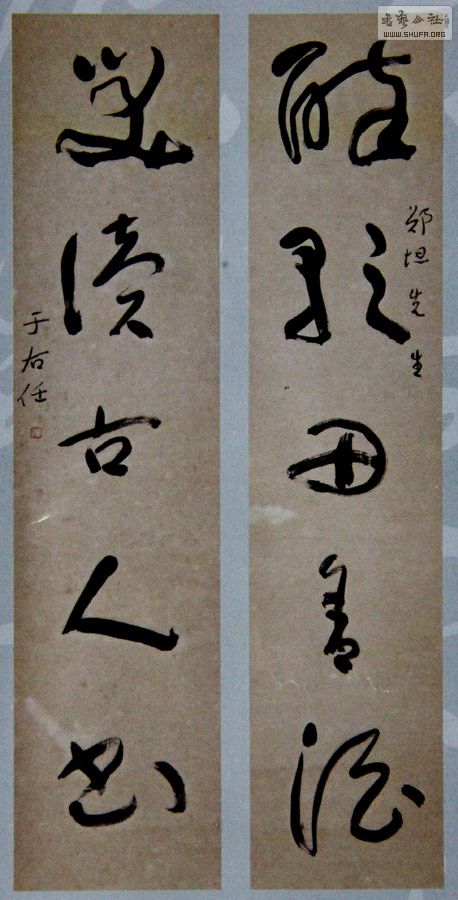 書藝公社
WWW.SHUFA.ORG
醉歌田舍酒
郑坦先生
笑讀古人書
于右任